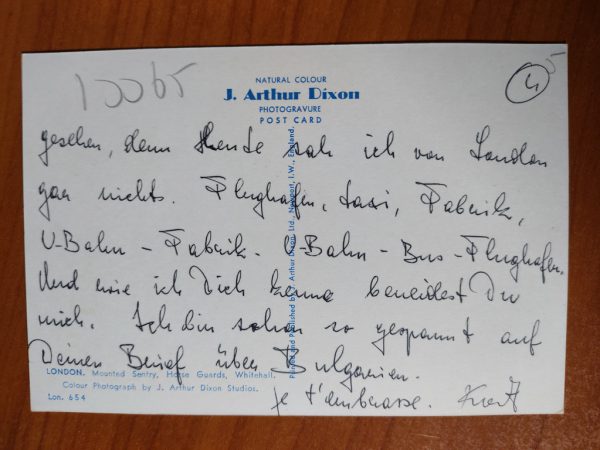 10065
4
NATURAL COLOUR
J. Arthur Dixon
PHOTOGRAVURE
POST CARD
gesehen, denn Heute sah ich von London
gar nichts. Flughafen, taxi, Fabrik,
U-Bahn - Fabrik - U-Bahn - Bus - Flughafen.
Und wie ich Dich kenne beneidest Du
mich. Ich bin schon so gespannt auf
Deinen Brief über Bulgarien.
je t'embrasse. Kurt
Printed and Published by J. Arthur Dixon Ltd., Newport, I.W., England.
LONDON. Mounted Sentry, Horse Guards, Whitehall.
Colour Photograph by J. Arthur Dixon Studios.
Lon. 654